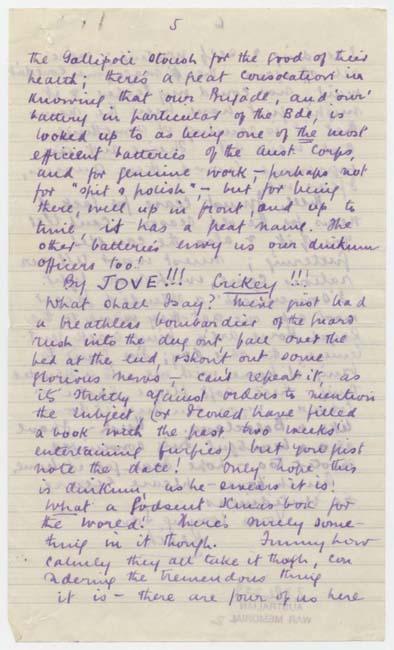 5
the Gallipoli stoush for the good of their
health; there's a great consolation in
knowing that our Brigade, and 'our'
battery in particular of the Bde, is
looked up to as being one of the most
efficient batteries of the Aust. Corps,
and for genuine work – perhaps not
for "spit & polish" – but for being
there, well up in front, and up to
time it has a great name. The
other batteries envy us our dinkum
officers too.
By JOVE!!! Crikey!!!
What shall I say? We've just had
a breathless bombardier of the guard
rush into the dug out, fall over the
bed at the end, & shout out some
glorious news – can't repeat it, as
its strictly against orders to mention
the subject, (or I could have filled
a book with the past two weeks'
entertaining furphies) but you just
note the date! Only hope this
is dinkum, as he swears it is!
What a Godsent Xmas box for
the World! There's surely some-
thing in it though. Funny how
calmly they all take it though, con
sidering the tremendous thing
it is – there are four of us here
AUSTRALIAN
WAR MEMORIAL